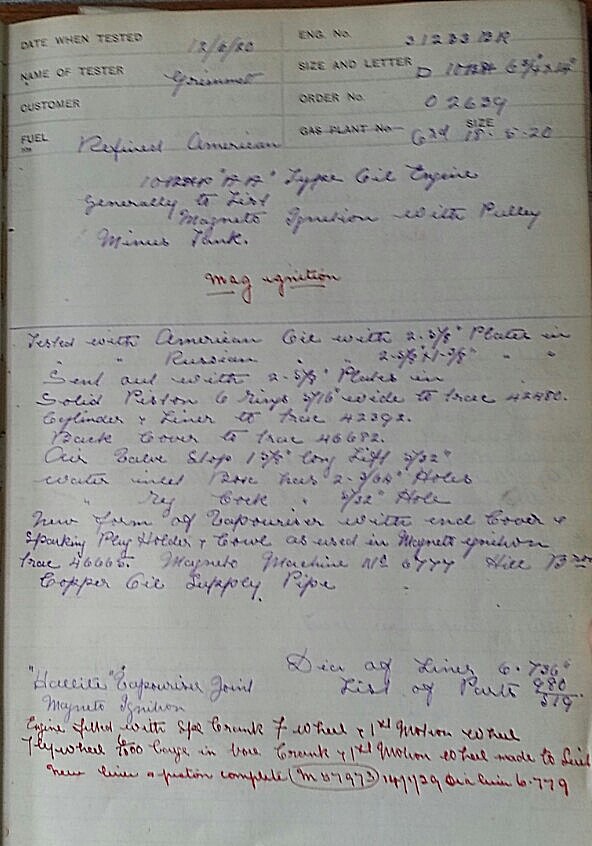 DATE WHEN TESTED 12/6/20 ENG. No. 31233 BR
NAME OF TESTER Grimmet SIZE AND LETTER D 10 6¾ x 14"
CUSTOMER ORDER No. 02639
FUEL Refined American GAS PLANT No SIZE 18.5.20
Type Oil Engine
Generally to List
Magneto Ignition with Pulley
Minus Tank.
Mag ignition
Tested with American Oil with 2-5/8" Plates in
" " Russian " " 2-5/8" " "
Sent out with 2-5/8" Plates in
Solid Piston 6 rings 5/16" wide to trac 42480.
Cylinder & Liner to trac 42392.
Back Cover to trac 46682.
Air Valve Stop 1 5/8" long Lift 5/32"
Water inlet Box has 2-9/64" Holes
" Reg Cock " 5/32" Hole
New form of Vapouriser with end Cover &
Sparking Plug Holder & Cowl as used in Magneto ignition
trac 46665. Magneto Machine No 6777 Hill Bros
Copper Oil Supply Pipe
Dia of Liner 6.736"
"Hallite" Vapouriser Joint List of Parts 980
Magneto Ignition 519.
Engine fitted with Spl Crank F wheel & 1st Motion wheel
Flywheel large in bore Crank & 1st Motion wheel made to Suit
New liner & piston complete (M 57973) 14/7/29 Dia liner 6.779